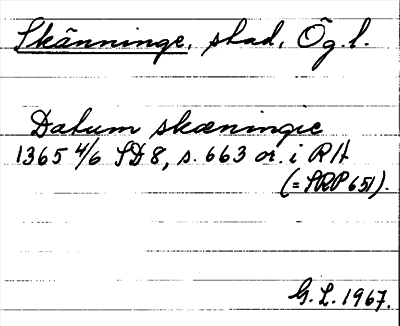 Skänninge, stad, Ög.l.
Datum skæningie
1365 4/6 SD8, s. 663 or. i RA
(= SRP 651).
G. L. 1967.